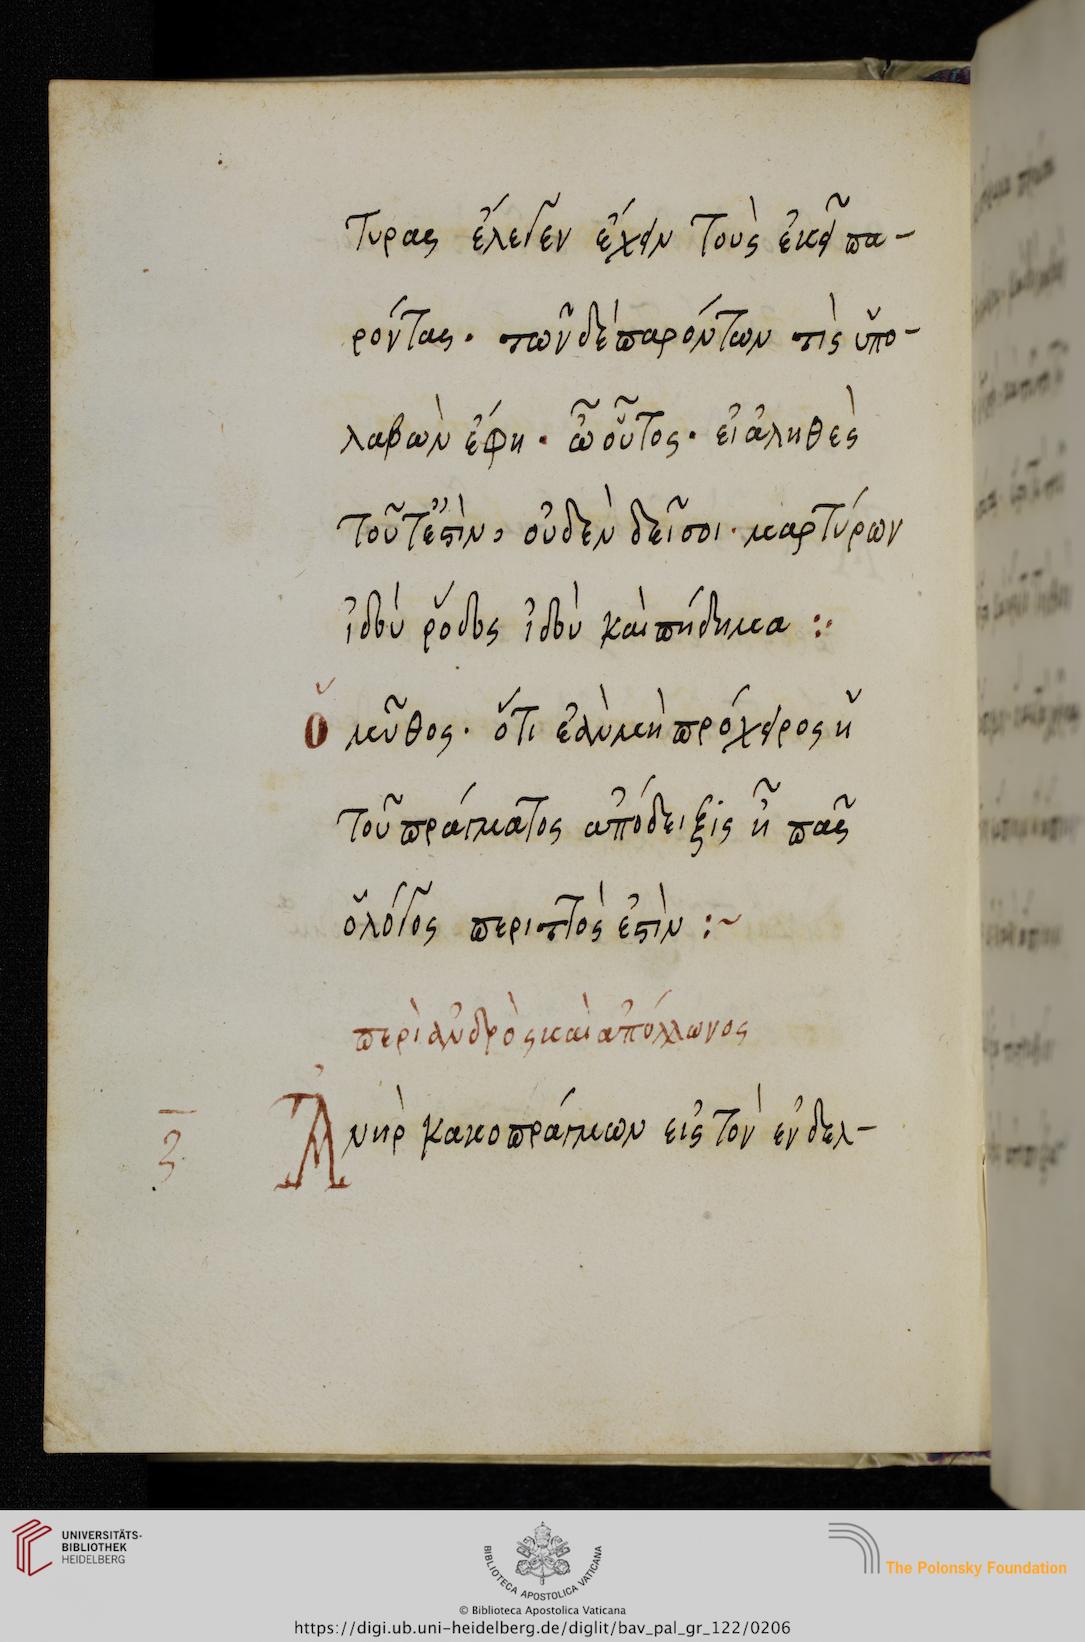 τυρας ἔλεγεν ἔχειν τοὺς ἐκεῖ πα-
ρόντας. τῶν δὲ παρόντων τὶς ὑπο-
λαβὼν ἔφη. ὦ οὗτος. εἰ ἀληθὲς
τοῦτ' ἔστὶν, οὐδὲν δεῖ σοι. μαρτύρων
ἰδοὺ ῥόδος ἰδοὺ καὶ πήδημα :·
Ὁ μῦθος. ὅτι ἐὰν μὴ πρόχειρος ἡ
τοῦ πράγματος ἀπόδειξις ἦ πᾶς
ὁ λόγος περιττὸς ἐστὶν :~
περὶ ἀνδρὸς καὶ ἀπόλλωνος
ζ Ἀνὴρ κακοπράγμων εἰς τὸν ἐν δελ-
UNIVERSITÄTS-
BIBLIOTHEK
HEIDELBERG
BIBLIOTECA APOSTOLICA VATICANA
The Polonsky Foundation
© Biblioteca Apostolica Vaticana
https://digi.ub.uni-heidelberg.de/diglit/bav_pal_gr_122/0206